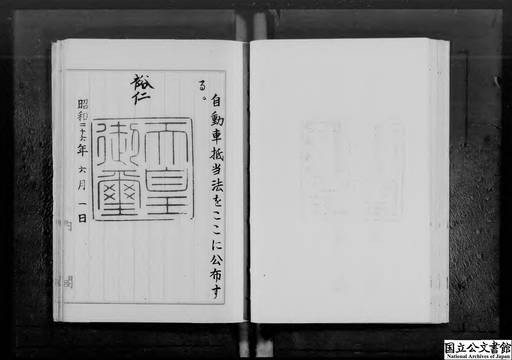 自動車抵当法をここに公布す
る。
裕仁
天皇
御璽
昭和二十六年六月一日
内閣
国立公文書館
National Archives of Japan